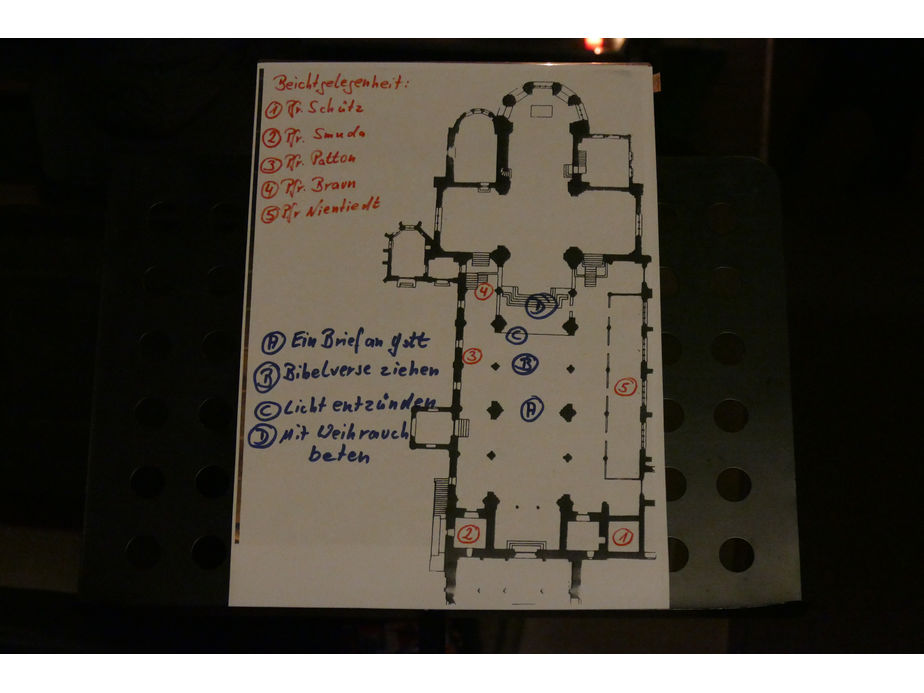 Beichtgelegenheit:
1 Pfr. Schütz
2 Pfr. Smuda
3 Pfr. Patton
4 Pfr. Braun
5 Pfr Nientiedt
A Ein Brief an Gott
B Bibelverse ziehen
C Licht entzünden
D Mit Weihrauch
beten
4
D
C
3
B
5
A
2
1